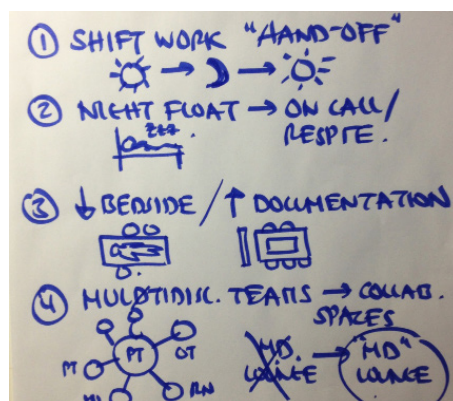 ① SHIFT WORK "HAND-OFF"
② NIGHT FLOAT → ON CALL/
RESPITE.
zzz
③ ↓ BEDSIDE / ↑ DOCUMENTATION
④ MULTIDISC. TEAMS → COLLAB.
SPACES
PT OT MD. → "MD"
PT LOUNGE LOUNGE
RN